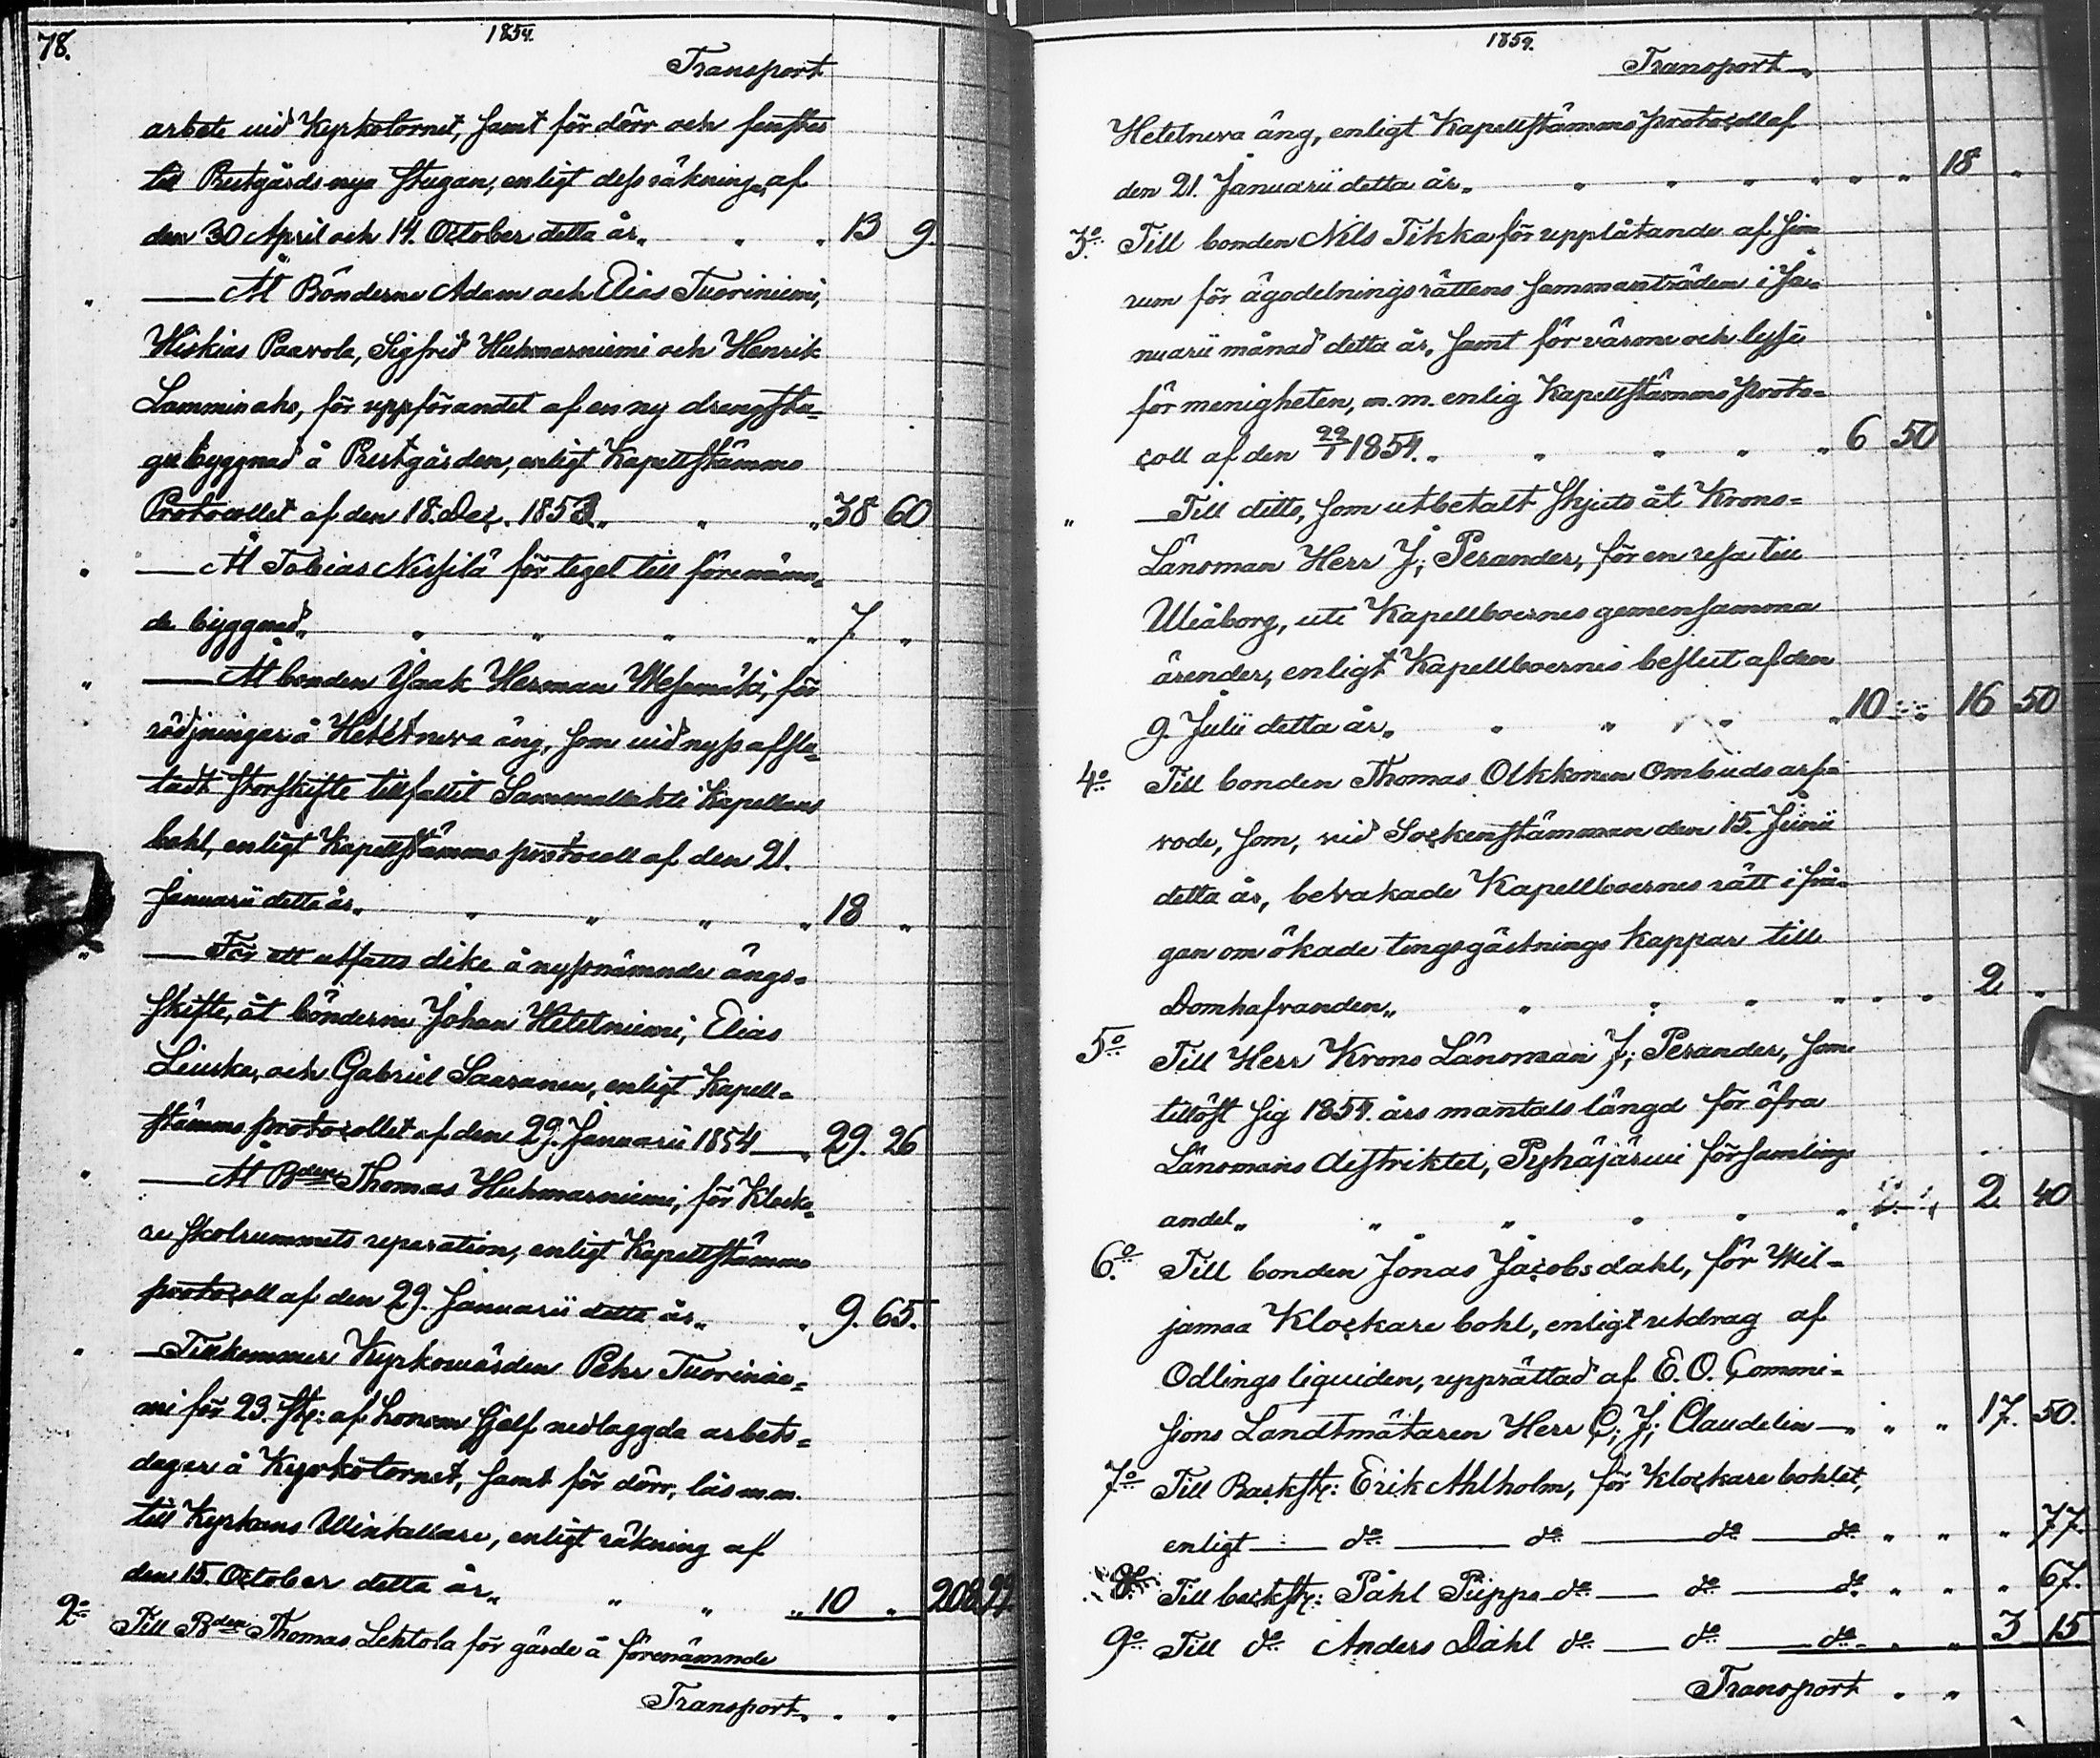 78.
1854.
Transport
arbete vid Kyrkotornet, samt för dörr och fenster
till Prestgårds nya stugan, enligt dess räkning, af
den 30 April och 14. October detta år „ „ „ 13 9.
„ — Åt Bönderne Adam och Elias Tuoriniemi,
Hiskias Paavola, Sigfrid Huhmarniemi och Henrik
Lamminaho, för uppförandet af en ny drengstu-
gu byggnad å Prestgården, enligt Kapellstämmo
Protocollet af den 18. Dec. 1853 „ „ „ 38 60
„ — Åt Tobias Nissilä för tegel till förenämn-
de byggnad „ „ „ „ „ 7 „
„ — Åt bonden Isaak Herman Mesomäki, för
rödjningar å Hetetneva äng, som vid nyss afslu-
tadt Storskifte tillfallit Sammallahti Kapellans
bohl, enligt Kapellstämmo protocoll af den 21.
Januarii detta år „ „ „ „ „ 18 „
„ — För ett utfalls dike å nyssnämnde ängs-
skifte, åt bönderne Johan Hetetniemi, Elias
Liuska, och Gabriel Saaranen, enligt Kapell-
stämmo protocollet af den 29. Januarii 1854 — „ 29. 26
„ — Åt Bden Thomas Huhmarniemi, för Klocka-
re skolrummets reparation, enligt Kapellstämmo
protocoll af den 29. Januarii detta år „ „ 9. 65.
„ — Tillkommer Kyrkowärden Pehr Tuorinie-
mi för 23. st: af honom sjelf nedlaggda arbets-
dagar å Kyrkotornet, samt för dörr, lås m.m.
till Kyrkans Winkällare, enligt räkning af
den 15. October detta år „ „ „ „ 10 „ 208. 99.
2o Till Bden Thomas Lehtola för gärde å förenämnde
Transport „ „ „
1854.
Transport „
Hetetneva äng, enligt Kapellstämmo protocoll af
den 21. Januarii detta år „ „ „ „ „ „ „ 18 „
3o Till bonden Nils Tikka för upplåtande af sina
rum för ägodelningsrättens sammanträden i Ja-
nuarii månad detta år, samt för värme och lysse
för menigheten, m.m. enlig Kapellstämmo proto-
coll af den 22/1 1854. „ „ „ „ „ 6 50
„ — Till ditto, som utbetalt skjuts åt Krono-
Länsman Herr J; Perander, för en resa till
Uleåborg, uti Kapellboernes gemensamma
ärender, enligt Kapellboernes beslut af den
9. Julii detta år „ „ „ „ „ 10 „ „ 16 50
4o Till bonden Thomas Olkkonen Ombuds arf-
vode, som, vid Sockenstämman den 15. Junii
detta år, bevakade Kapellboernes rätt i frå-
gan om ökade tingsgästnings kappar till
Domhafvanden „ „ „ „ „ „ „ 2 „
5o Till Herr Krono Länsman J; Perander, som
tillöst sig 1854. års mantals längd för öfra
Länsmans distriktet, Pyhäjärvi församlings
andel „ „ „ „ „ „ 2. 40
6o. Till bonden Jonas Jacobsdahl, för Wil-
jamaa Klockare bohl, enligt utdrag af
Odlings liquiden, upprättad af E. O. Commi-
sions Landtmätaren Herr C; J; Claudelin — „ „ „ 17. 50.
7o Till Backst: Erik Ahlholm, för Klockare bohlet,
enligt — do — do — do — do „ „ „ 77.
8o. Till backst: Påhl Piippo do — do — do „ „ „ 67.
9o Till do Anders Dahl do — do — do „ „ 3 15
Transport „ „